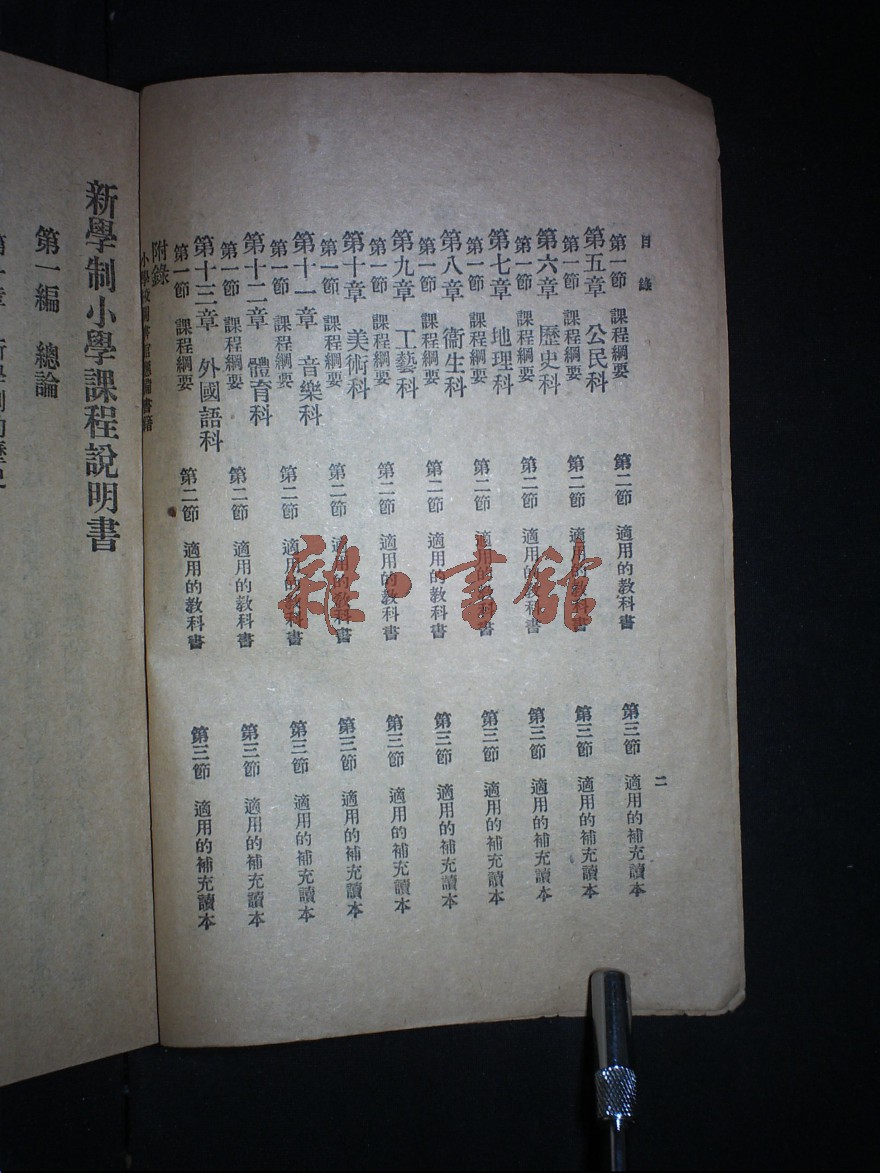 目錄 二
第一節 課程綱要 第二節 適用的教科書 第三節 適用的補充讀本
第五章 公民科
第一節 課程綱要 第二節 適用的教科書 第三節 適用的補充讀本
第六章 歷史科
第一節 課程綱要 第二節 適用的教科書 第三節 適用的補充讀本
第七章 地理科
第一節 課程綱要 第二節 適用的教科書 第三節 適用的補充讀本
第八章 衞生科
第一節 課程綱要 第二節 適用的教科書 第三節 適用的補充讀本
第九章 工藝科
第一節 課程綱要 第二節 適用的教科書 第三節 適用的補充讀本
第十章 美術科
第一節 課程綱要 第二節 適用的教科書 第三節 適用的補充讀本
第十一章 音樂科
第一節 課程綱要 第二節 適用的教科書 第三節 適用的補充讀本
第十二章 體育科
第一節 課程綱要 第二節 適用的教科書 第三節 適用的補充讀本
第十三章 外國語科
第一節 課程綱要 第二節 適用的教科書 第三節 適用的補充讀本
附錄
小學校圖書館應備書籍
新學制小學課程說明書
第一編 總論
雜·書館